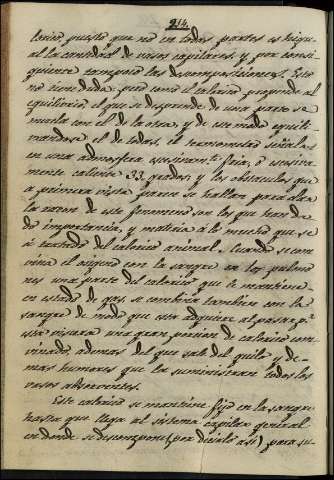 214.
lorico puesto que no en todas partes es higu-
al la cantidad de vasos capilares, y por consi-
guiente tampoco las descomposiciones. Esto
no tiene duda; pero como el calorico propende al
equilibrio el que se desprende de una parte se
mezcla con el de la otra, y de este modo equili-
brandose el de todas, el termometro señala
en una admosfera escesivamte. fria, o escesiva-
mente caliente 33 grados; y los obstaculos que
a primera vista parece se hallan para dar
la razon de este fenomeno son los que han da-
do importancia, y materia á lo mucho que se
á tratado del calorico animal. Cuando se com-
vina el osigeno con la sangre en los pulmo-
nes una parte del calorico que le mantiene
en estado de gas, se combina tambien con la
sangre de modo que esta adquiere al pasar pr.
esta viscera una gran porcion de calorico com-
vinado, ademas del que sale del quilo y de-
mas humores que la suministran todos los
vasos absorventes.
Este calorico se mantiene fijo en la sangre
hasta que llega al sistema capilar general
en donde se descompone (por decirlo asi) para su-